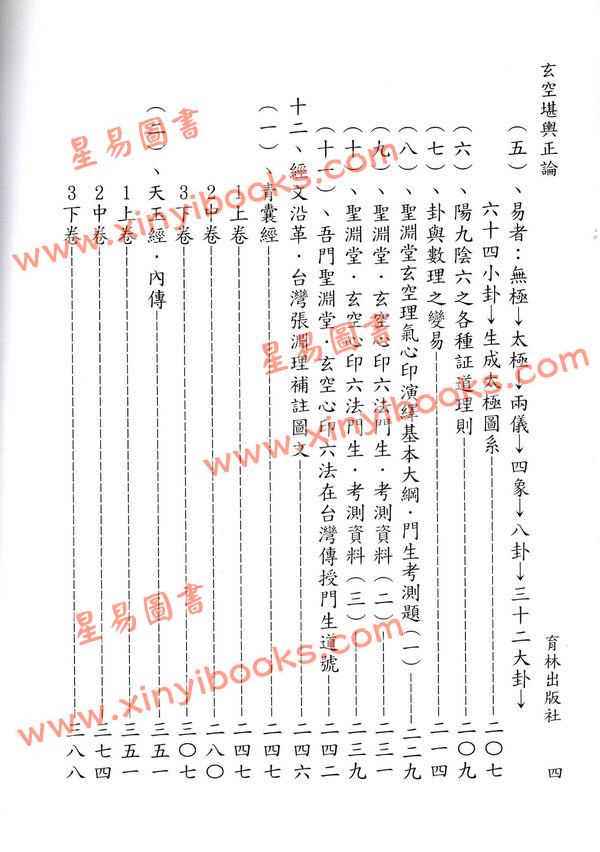 玄空堪輿正論 育林出版社 四
（五）、易者：無極↓太極↓兩儀↓四象↓八卦↓三十二大卦↓
六十四小卦↓生成太極圖系 二〇七
（六）、陽九陰六之各種証道理則 二〇九
（七）、卦與數理之變易 二一四
（八）、聖淵堂玄空理氣心印演繹基本大綱·門生考測題（一） 二二九
（九）、聖淵堂·玄空心印六法門生·考測資料（二） 二三一
（十）、聖淵堂·玄空心印六法門生·考測資料（三） 二三九
（十一）、吾門聖淵堂·玄空心印六法在台灣傳授門生道號 二四二
十二、經文沿革·台灣張淵理補註圖文 二四六
（一）、青囊經 二四七
1上卷 二四七
2中卷 二八〇
3下卷 三〇七
（二）、天玉經·內傳 三五一
1上卷 三五一
2中卷 三七四
3下卷 三八八
星易圖書
www.xinyibooks.com
星易圖書
www.xinyibooks.com
星易圖書
www.xinyibooks.com